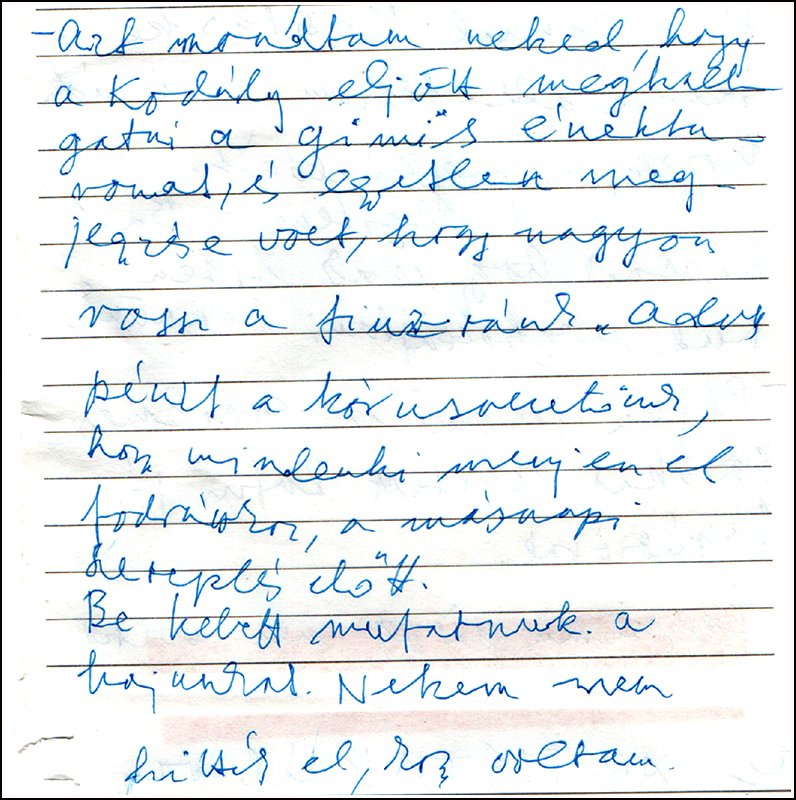 - Azt mondtam neked, hogy
a Kodály eljött meghall
gatni a gimis énekka
romat, és egyetlen meg-
jegyzése volt, hogy nagyon
rossz a frizuránk. Adott
pénzt a kórusvezetőnk,
hogy mindenki menjen el
fodrászhoz, a másnapi
szereplés előtt.
Be kellett mutatnunk a
hajunkat. Nekem nem
hitték el, hogy voltam.